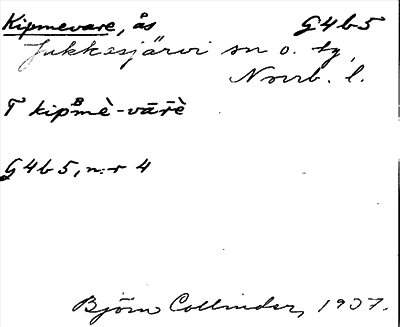 Kipmevare, ås G4b5
Jukkasjärvi sn o. tg,
Norrb. l.
T kipᴮmè-vār̄è
G4b5, n:r 4
Björn Collinder, 1937.